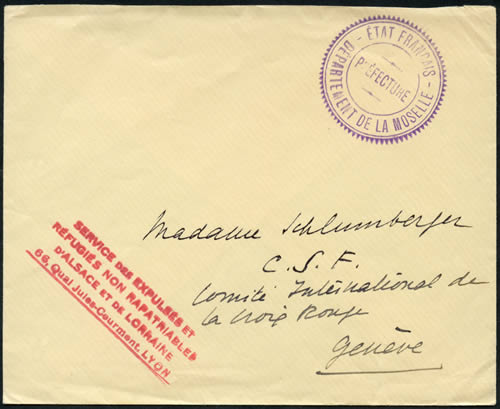 - ÉTAT FRANÇAIS -
DÉPARTEMENT DE LA MOSELLE
PRÉFECTURE
SERVICE DES EXPULSÉS ET
RÉFUGIÉS NON RAPATRIABLES
D'ALSACE ET DE LORRAINE
66, Quai Jules-Courmont, LYON
Madame Schlumberger
C. S. F.
Comité International de
la Croix Rouge
Genève